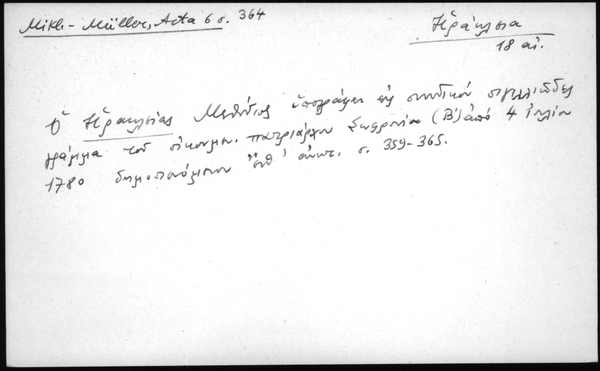 Mikl.- Müller, Acta 6 σ. 364
Ἡράκλεια
18 αἰ.
Ὁ Ἡρακλείας Μεθόδιος ὑπογράφει εἰς συνοδικόν σιγιλλιῶδες
γράμμα τοῦ οἰκουμεν. πατριάρχου Σωφρονίου (Β') ἀπό 4 Ἰουλίου
1780 δημοσιευόμενον ἀνωτ. σ. 359-365.